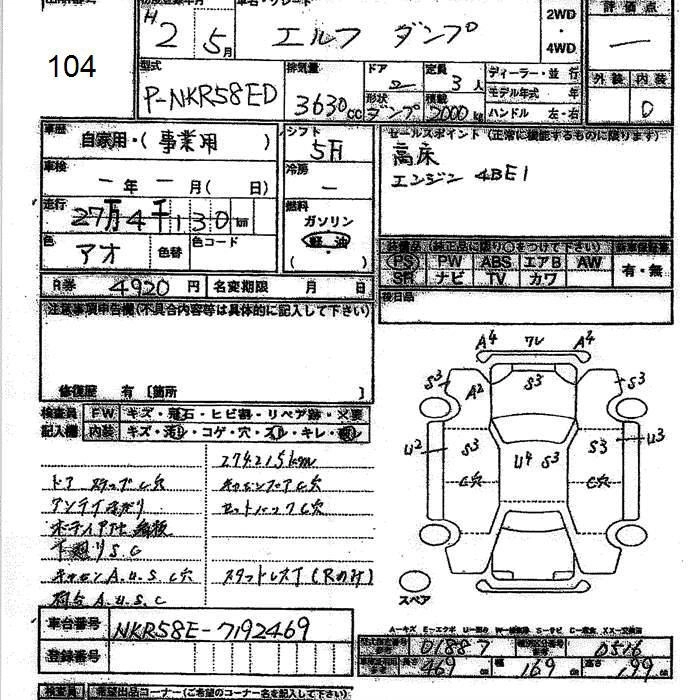 初度登録年月 車名・グレード
104
H 2 5月 エルフ ダンプ
2WD・4WD
評価点
型式 P-NKR58ED
排気量 3630cc
ドア 2
定員 3人
形状 ダンプ
積載 2000kg
ディーラー・並行
モデル年式 年
ハンドル 左・右
外装 内装 D
車歴 自家用・(事業用)
シフト 5F
セールスポイント (正常に機能するものに限ります)
高床
エンジン 4BE1
車検 ー年ー月( 日)
冷房 ー
走行 27万4千130km
燃料 ガソリン
軽油
( )
色 アオ 色替 色コード
装備品 (純正品に限り○をつけて下さい) 新車保証書
PS PW ABS エアB AW 有・無
SR ナビ TV カワ
R券 4920円 名変期限 月 日
後日品
注意事項申告欄(不具合内容等は具体的に記入して下さい)
修復歴 有 [箇所 ]
検査員 FW キズ・飛石・ヒビ割・リペア跡・X要
記入欄 内装 キズ・汚れ・コゲ・穴・スレ・キレ・
274215km
ドア ステップC穴 キャビンフロアC穴
セットバックC穴
下廻りS.C
キャビンA.U.S.C穴 スタットレス丁(Rのみ)
A.U.S.C
A4 ワレ A4
S3 A2 S3 S3
U2 S3 U4 S3 S3 U3
C穴 C穴
スペア
車台番号 NKR58E-7192469
登録番号
A-キズ E-エクボ
01887 0516
長さ 469cm 幅 169cm 高さ 199cm
検査員 希望出品コーナー(ご希望のコーナー名を記入して下さい)